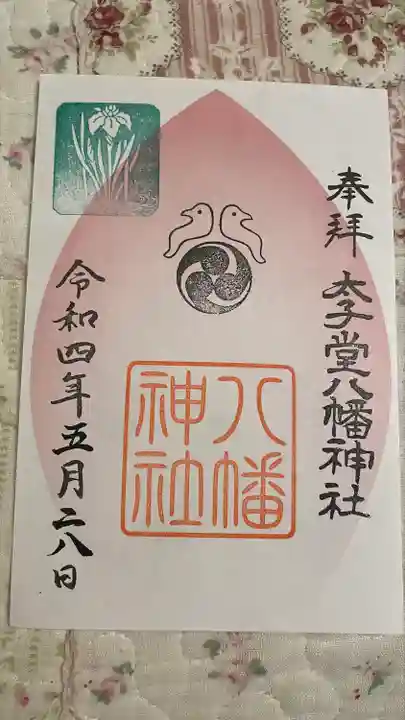 奉拝 太子堂八幡神社
八幡
神社
令和四年五月二八日